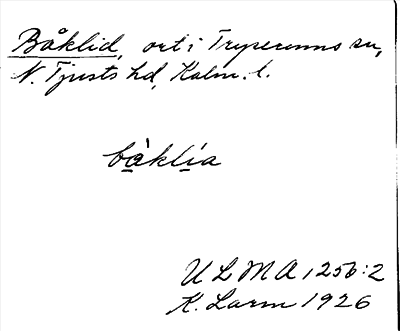 Båklid, ort i Tryserums sn,
N. Tjusts hd, Kalm. l.
bàklía
ULMA 1256:2
K. Larm 1926